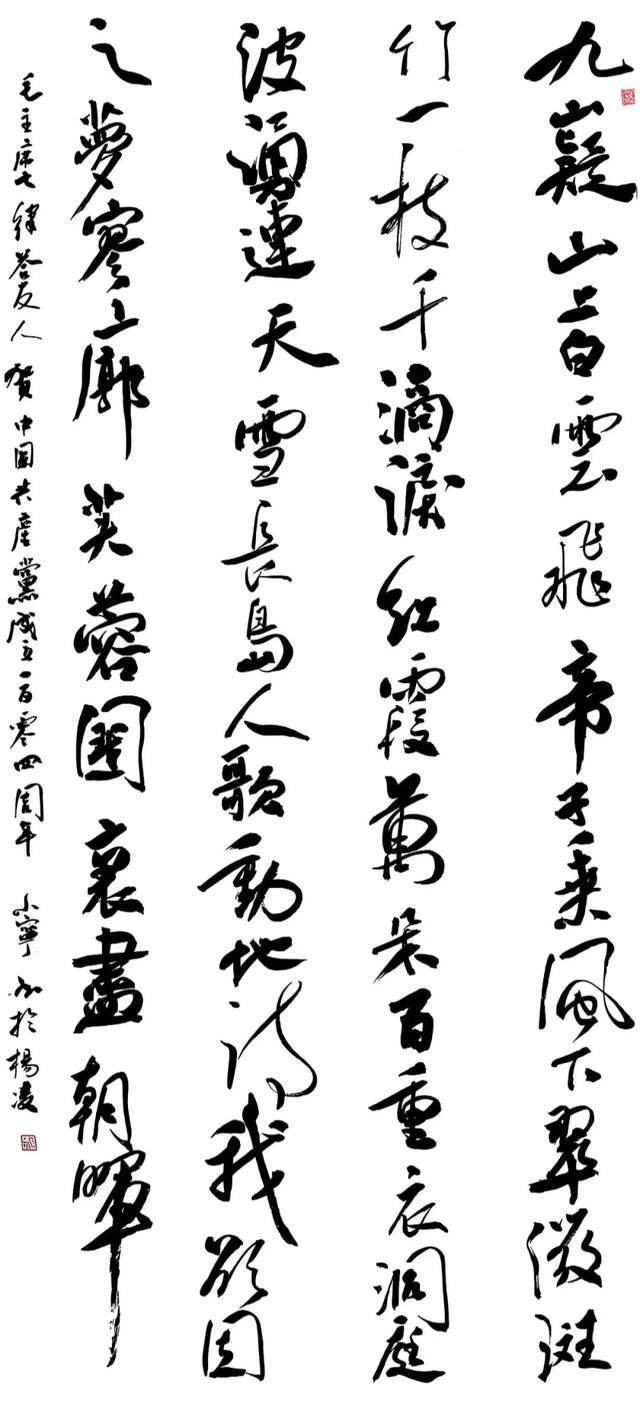 九嶷山上白雲飛帝子乘風下翠微斑
竹一枝千滴淚紅霞萬朵百重衣洞庭
波湧連天雪長島人歌動地詩我欲因
之夢寥廓芙蓉國裏盡朝暉
毛主席七律答友人 賀中國共產黨成立一百零四周年 小寧書於楊凌